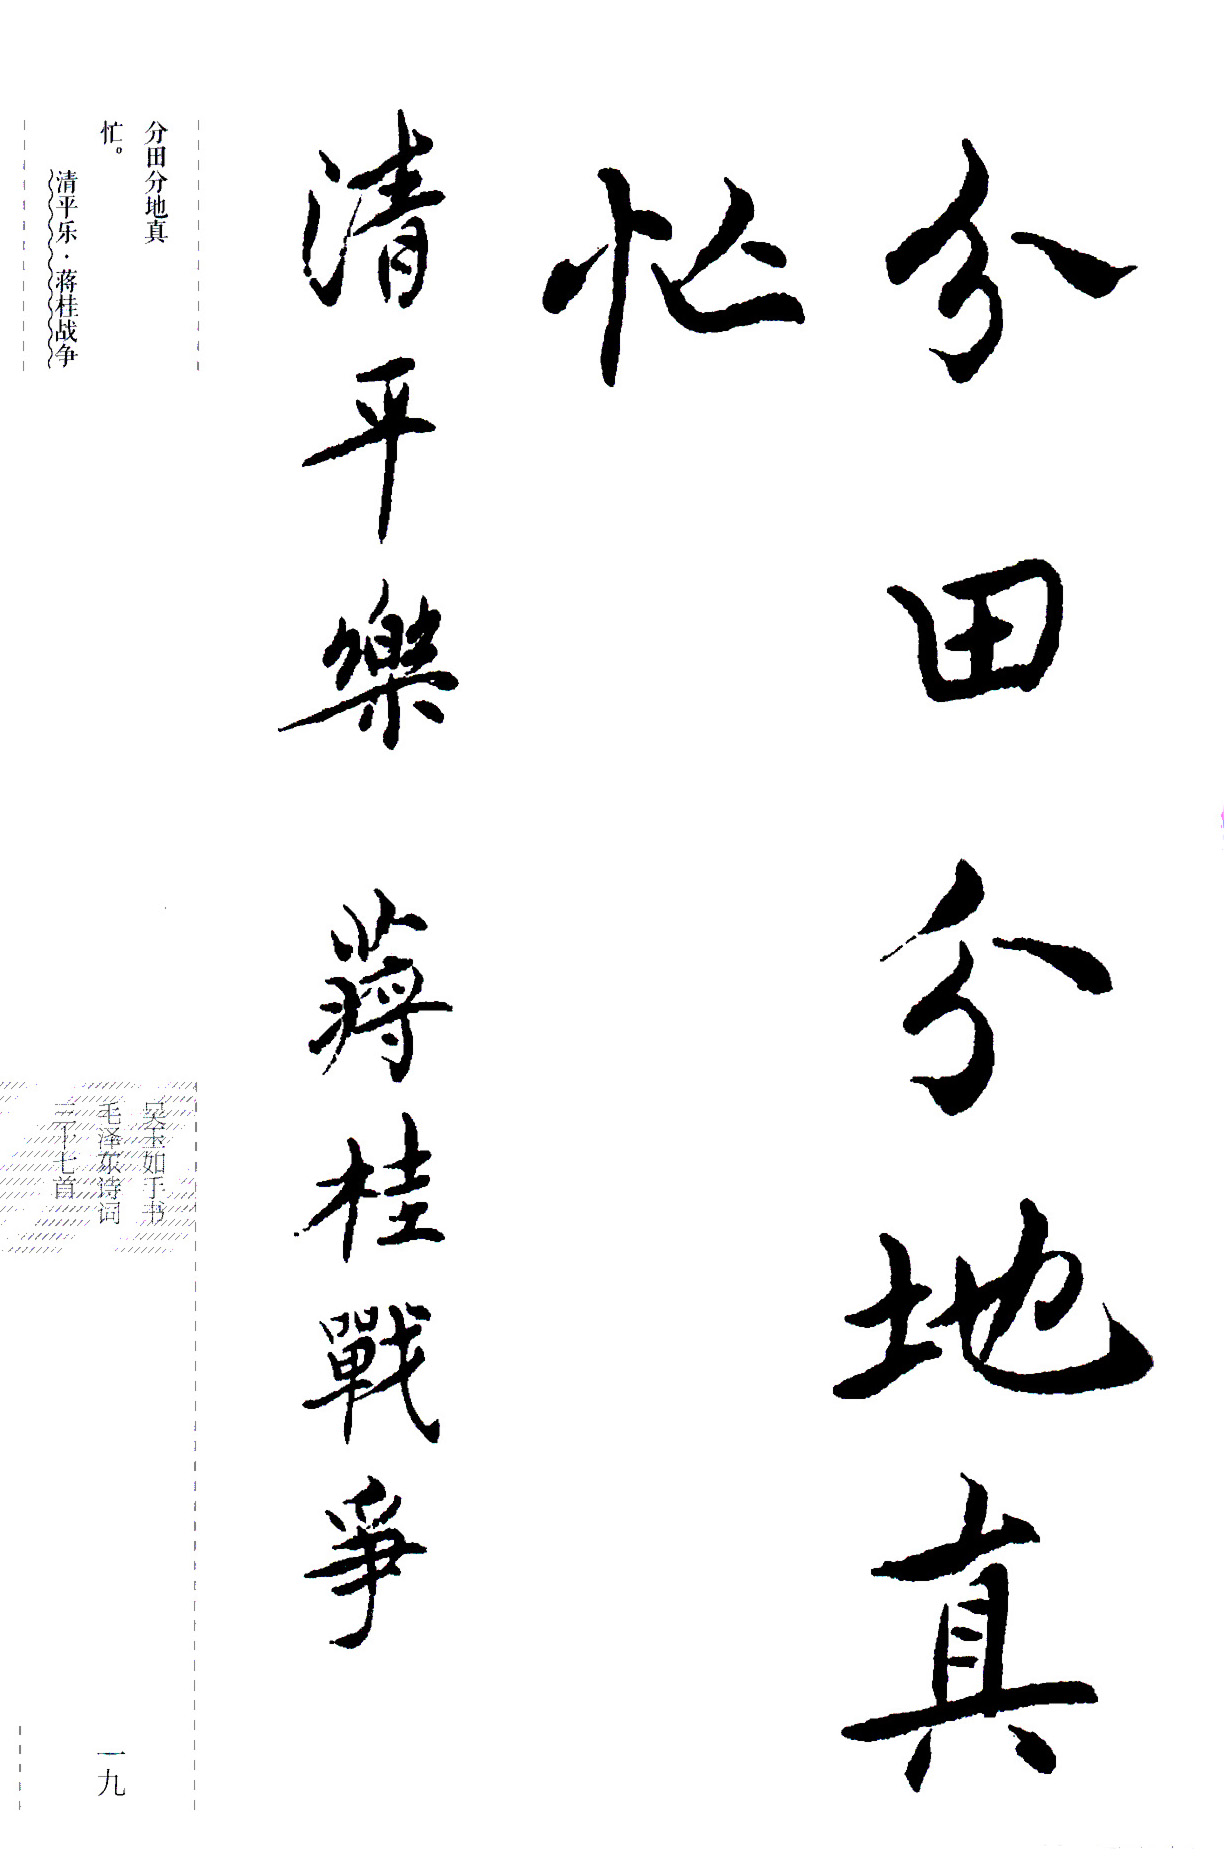 分田分地真
忙
清平樂 蔣桂戰爭
分田分地真
忙。
清平乐·蒋桂战争
吴玉如手书
毛泽东诗词
三十七首
一九